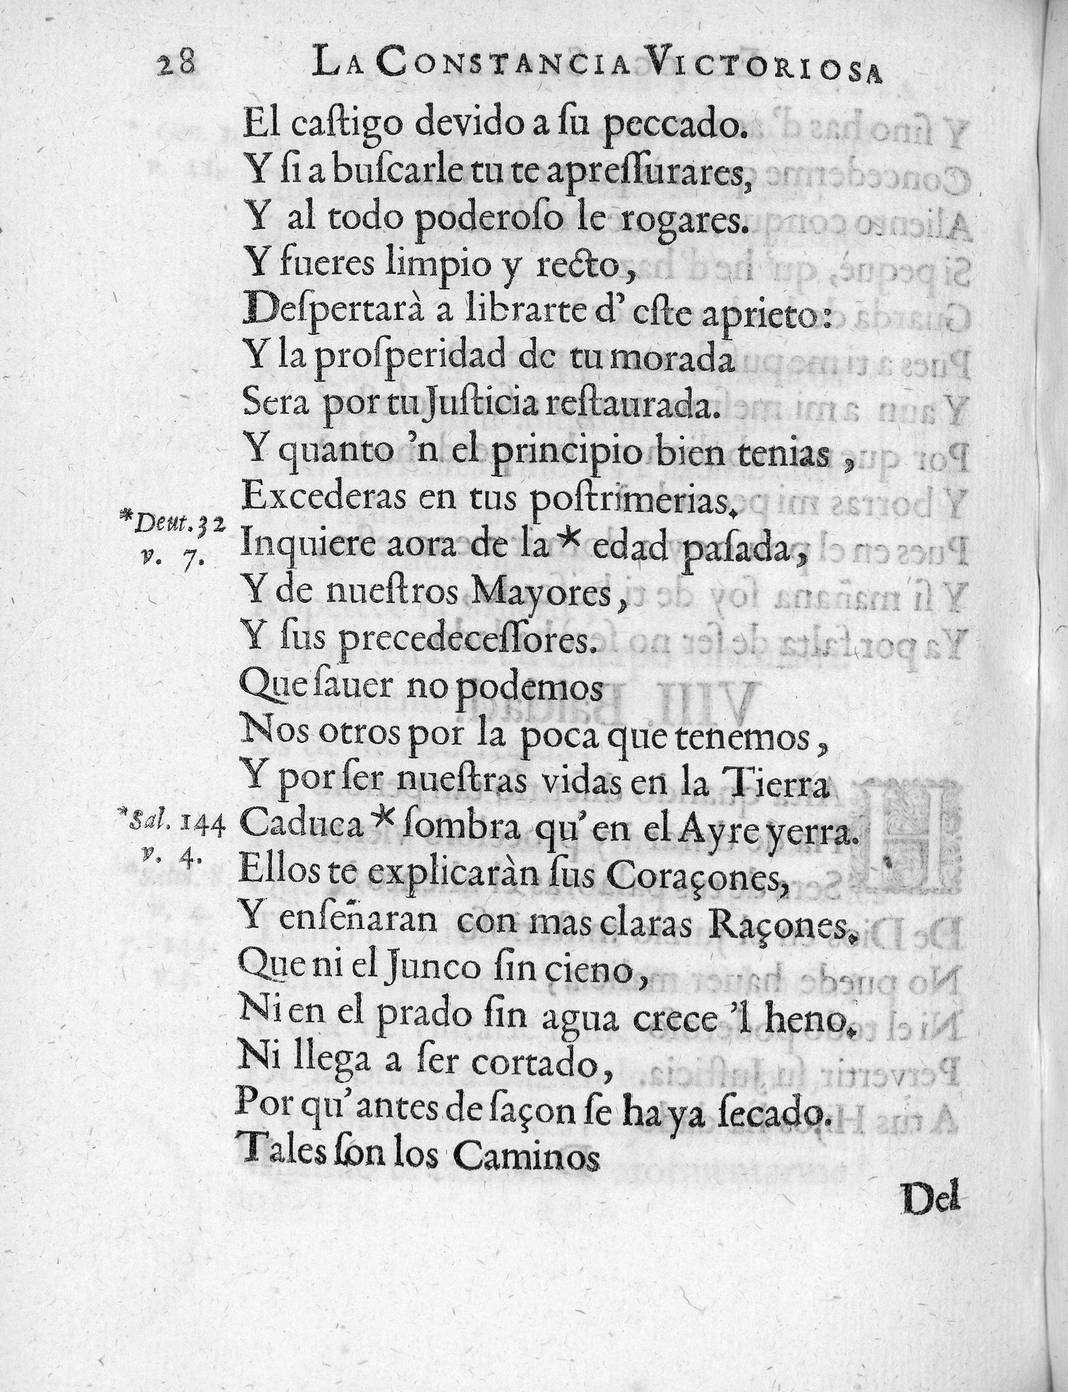 28 LA CONSTANCIA VICTORIOSA
El caſtigo devido a ſu peccado.
Y ſi a buſcarle tu te apreſſurares,
Y al todo poderoſo le rogares.
Y fueres limpio y recto,
Deſpertarà a librarte d' eſte aprieto:
Y la proſperidad de tu morada
Sera por tu Juſticia reſtaurada.
Y quanto 'n el principio bien tenias,
Excederas en tus poſtrimerias.
*Deut. 32
v. 7.
Inquiere aora de la * edad paſada,
Y de nueſtros Mayores,
Y ſus precedeceſſores.
Que ſauer no podemos
Nos otros por la poca que tenemos,
Y por ſer nueſtras vidas en la Tierra
*Sal. 144
v. 4.
Caduca * ſombra qu' en el Ayre yerra.
Ellos te explicaràn ſus Coraçones,
Y enſeñaran con mas claras Raçones.
Que ni el Junco ſin cieno,
Ni en el prado ſin agua crece 'l heno.
Ni llega a ſer cortado,
Por qu' antes de ſaçon ſe ha ya ſecado.
Tales ſon los Caminos
Del